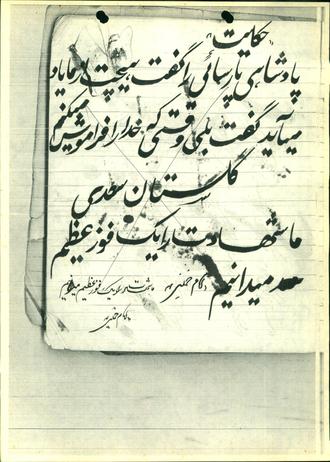 "حکایت"
پادشاهی پارسائی را گفت هیچت از ما یاد
میآید گفت بلی وقتی که خدا را فراموش میکنم
گلستان سعدی
ما شهادت را یک فوز عظیم
میدانیم
امام خمینی
ما شهادت را یک فوز عظیم میدانیم
امام خمینی